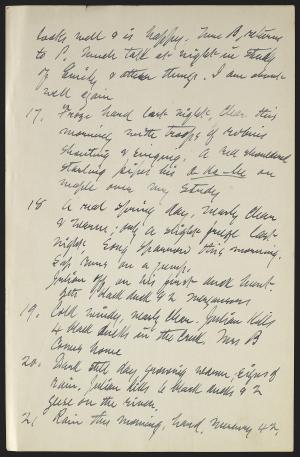 looks well & is happy. Mrs B. returns
to P. Much talk at night in study
of Emily & other things. I am about
well again
17. Froze hard last night, clear this
morning, with troops of robins
shouting & singing. A red shouldered
starling pipes his o-ka-lee on
maple over my study
18 A real spring day, nearly clear
& warm, only a slight freeze last
night, Song Sparrow this morning.
Sap runs on a jump.
Julian off on his first duck hunt.
Gets 1 black duck & 2 mergansers
19. Cold windy, nearly clear. Julian kills
4 black ducks in the creek. Mrs B
comes home
20. Dark still day, growing warm, signs of
rain, Julian kills 6 black ducks & 2
geese on the river.
21 Rain this morning, hard, mercury 42.